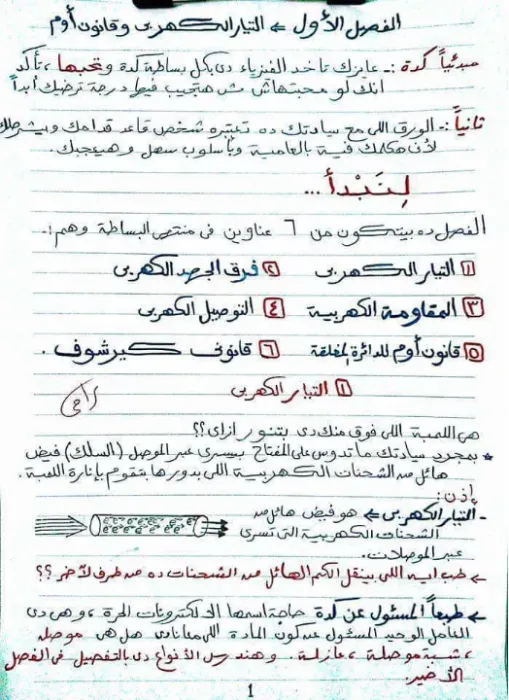 الفصل الأول ← التيار الكهربى وقانون أوم
مبدئياً كدة :- عايزك تاخد الفيزياء دى بكل بساطة كدة وتحبها، تأكد
انك لو محبتهاش مش هتجيب فيها درجة ترضيك أبداً
ثانياً :- الورق اللى مع سيادتك ده تعتبره شخص قاعد قدامك وبيشرحلك
لأن هكلمك فيه بالعامية وبأسلوب سهل وهيعجبك.
لنبدأ ...
الفصل ده بيتكون من 6 عناوين فى منتهى البساطة وهم :-
١ التيار الكهربى ٢ فرق الجهد الكهربى
٣ المقاومة الكهربية ٤ التوصيل الكهربى
٥ قانون أوم للدائرة المغلقة ٦ قانونى كيرشوف .
١ التيار الكهربى
هى اللمبة اللى فوق منك دى بتنور ازاى؟؟
* بمجرد سيادتك ما تدوس على المفتاح بيسرى عبر الموصل (السلك) فيض
هائل من الشحنات الكهربية اللى بدورها بتقوم بإنارة اللمبة.
إذن :
- التيار الكهربى ← هو فيض هائل من
الشحنات الكهربية التى تسرى
عبر الموصلات.
← طب ايه اللى بينقل الكم الهائل من الشحنات ده من طرف لآخر؟؟
← طبعاً المسئول عن كدة حاجة اسمها الالكترونات الحرة، وهى دى
العامل الوحيد المسئول عن كون المادة اللى معانا دى هل هى موصلة
، شبه موصلة، عازلة. وهندرس الأنواع دى بالتفصيل فى الفصل
الأخير.
1